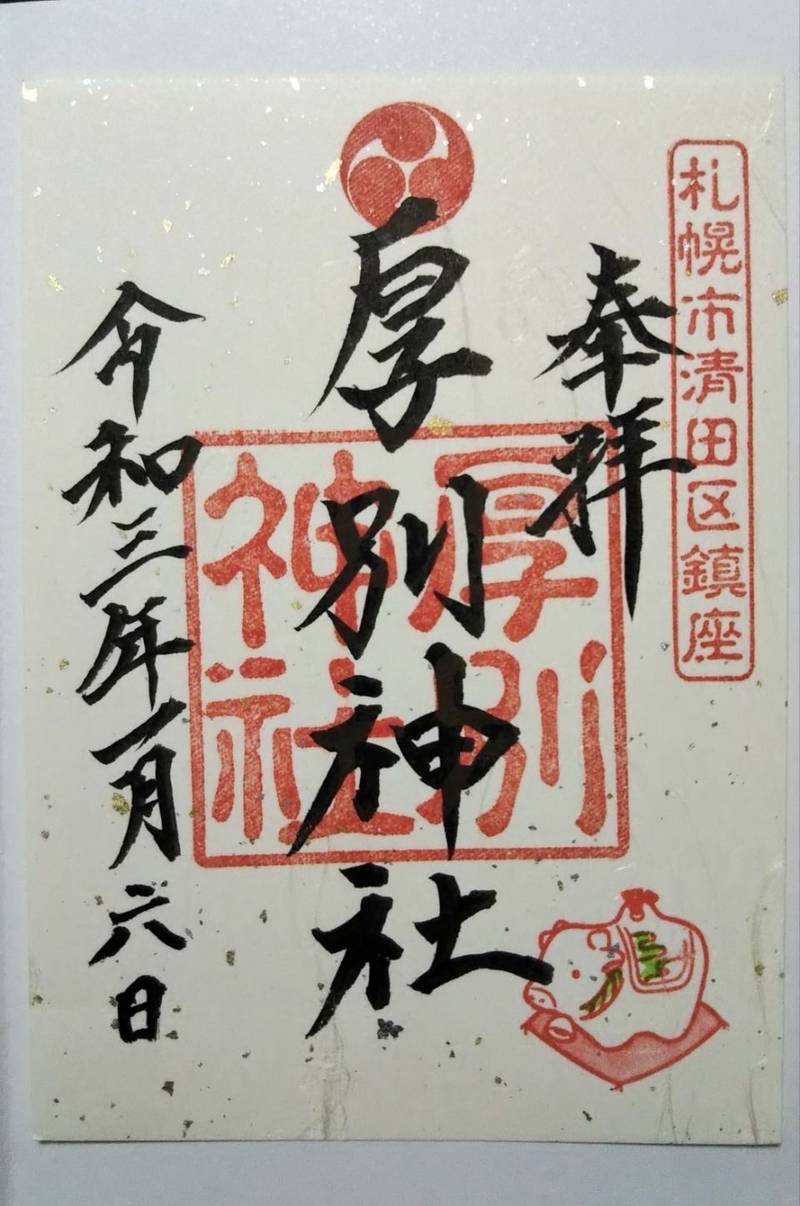 札幌市清田区鎮座
奉拝
厚別神社
厚別
神社
令和三年一月六日